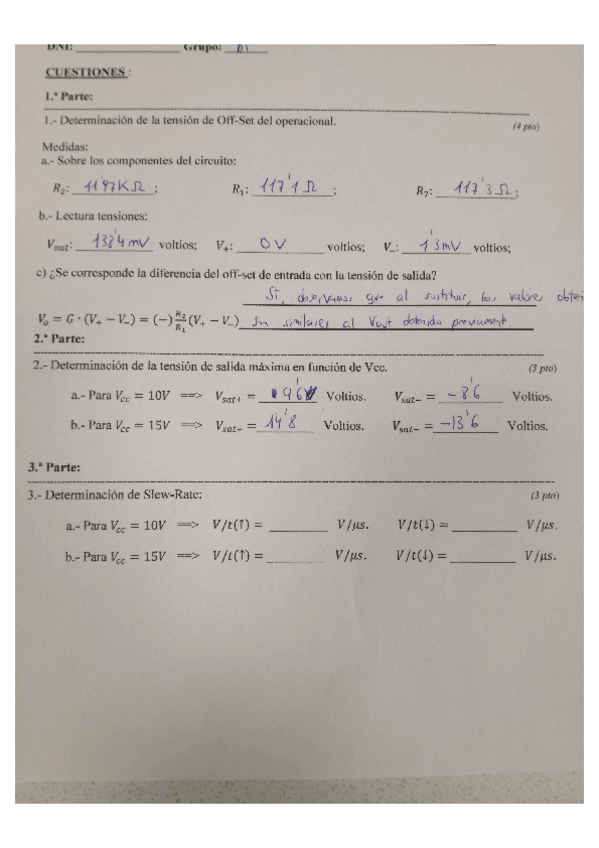 DNI: ____________ Grupo: B1
CUESTIONES :
1.ª Parte:
1.- Determinación de la tensión de Off-Set del operacional. (4 pto)
Medidas:
a.- Sobre los componentes del circuito:
R₂: 119'7KΩ ; R₁: 117'1Ω ; R₇: 117'3Ω ;
b.- Lectura tensiones:
Vout: 1324mV voltios; V₊: 0V voltios; V₋: 1'3mV voltios;
c) ¿Se corresponde la diferencia del off-set de entrada con la tensión de salida?
Si, observamos que al sustituir, los valores
V₀ = G · (V₊ − V₋) = (−) R₂/R₁ (V₊ − V₋) Son similares al Vout obtenido previamente.
2.ª Parte:
2.- Determinación de la tensión de salida máxima en función de Vcc. (3 pto)
a.- Para Vcc = 10V ==> Vsat+ = 9'6 Voltios. Vsat− = −8'6 Voltios.
b.- Para Vcc = 15V ==> Vsat+ = 14'8 Voltios. Vsat− = −13'6 Voltios.
3.ª Parte:
3.- Determinación de Slew-Rate: (3 pto)
a.- Para Vcc = 10V ==> V/t(↑) = ________ V/µs. V/t(↓) = ________ V/µs.
b.- Para Vcc = 15V ==> V/t(↑) = ________ V/µs. V/t(↓) = ________ V/µs.